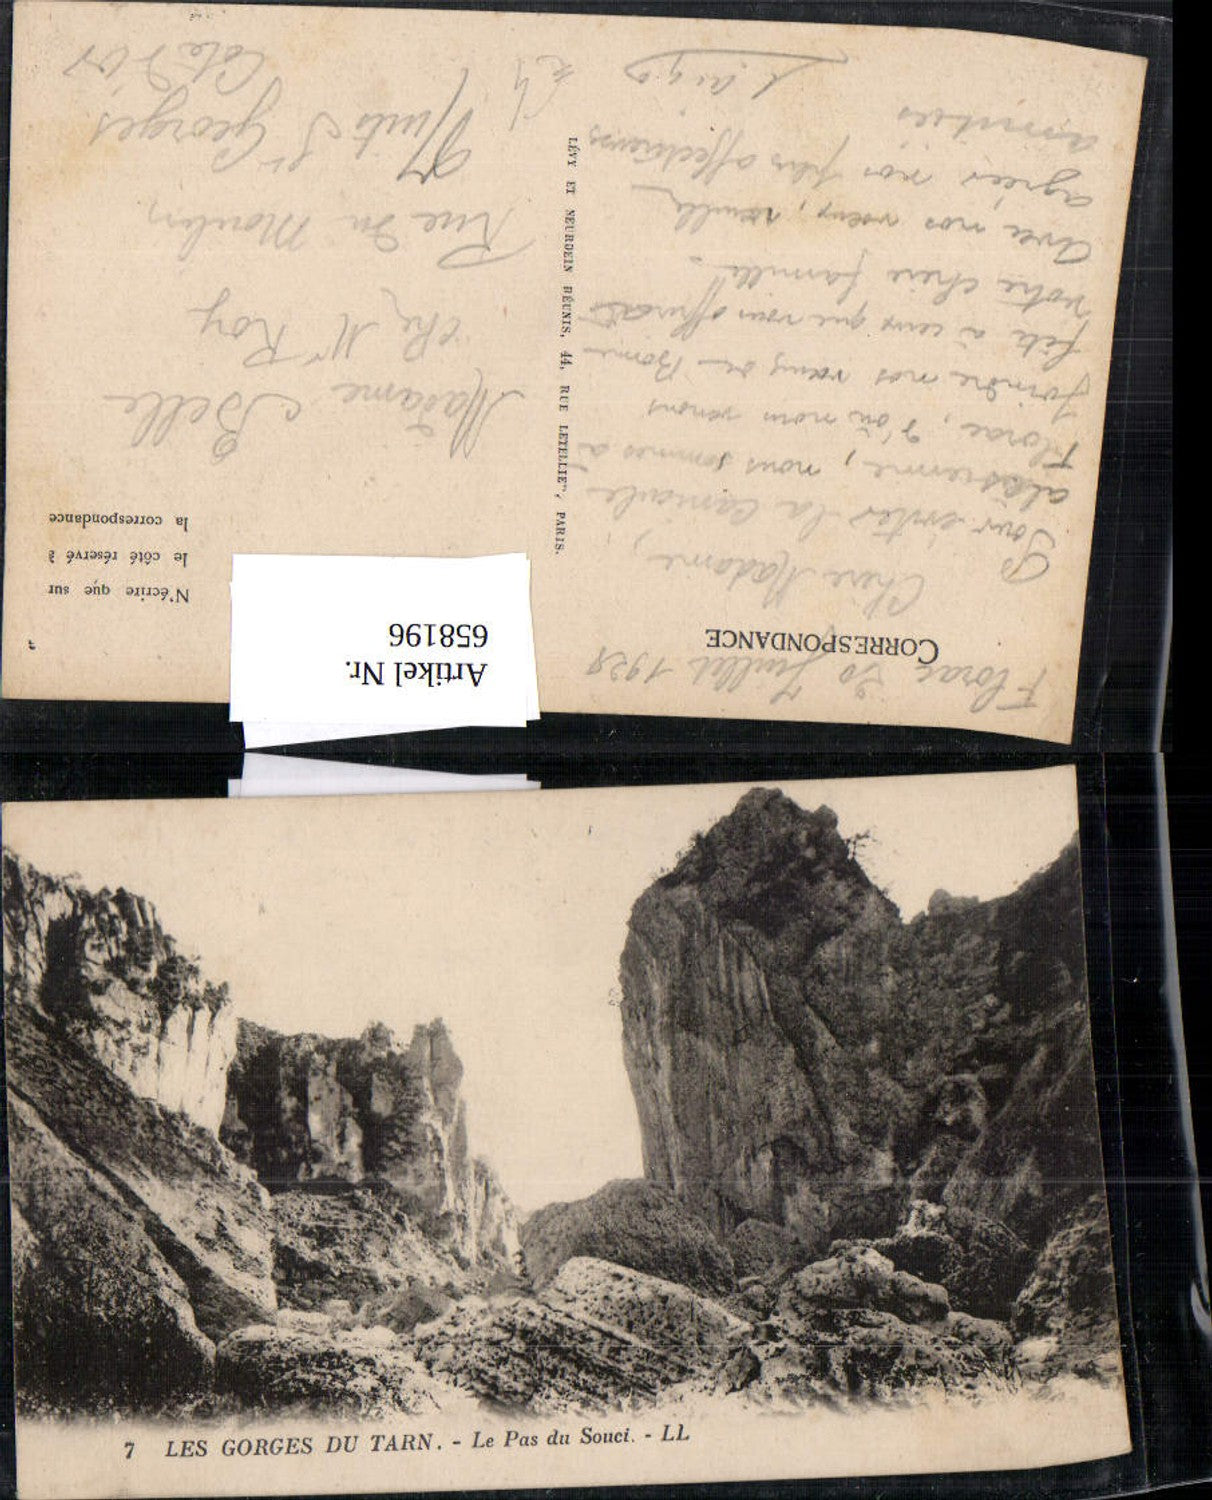 CORRESPONDANCE
Florac 30 Juillet 1928
Chère Madame,
Pour éviter la canicule
alésienne, nous sommes à
Florac, d'où nous venons
joindre nos vœux de Bonne
fête à ceux que vous offrirait
votre chère famille.
Avec nos vœux, veuillez
agréer nos plus affectueuses
amitiés
LÉVY ET NEURDEIN RÉUNIS, 44, RUE LETELLIER, PARIS.
N'écrire que sur
le côté réservé à
la correspondance
7
Madame Belle
chez Mr Roy
Rue du Moulin,
Nuits St Georges
Côte d'Or
Artikel Nr.
658196
7 LES GORGES DU TARN. - Le Pas du Souci. - LL